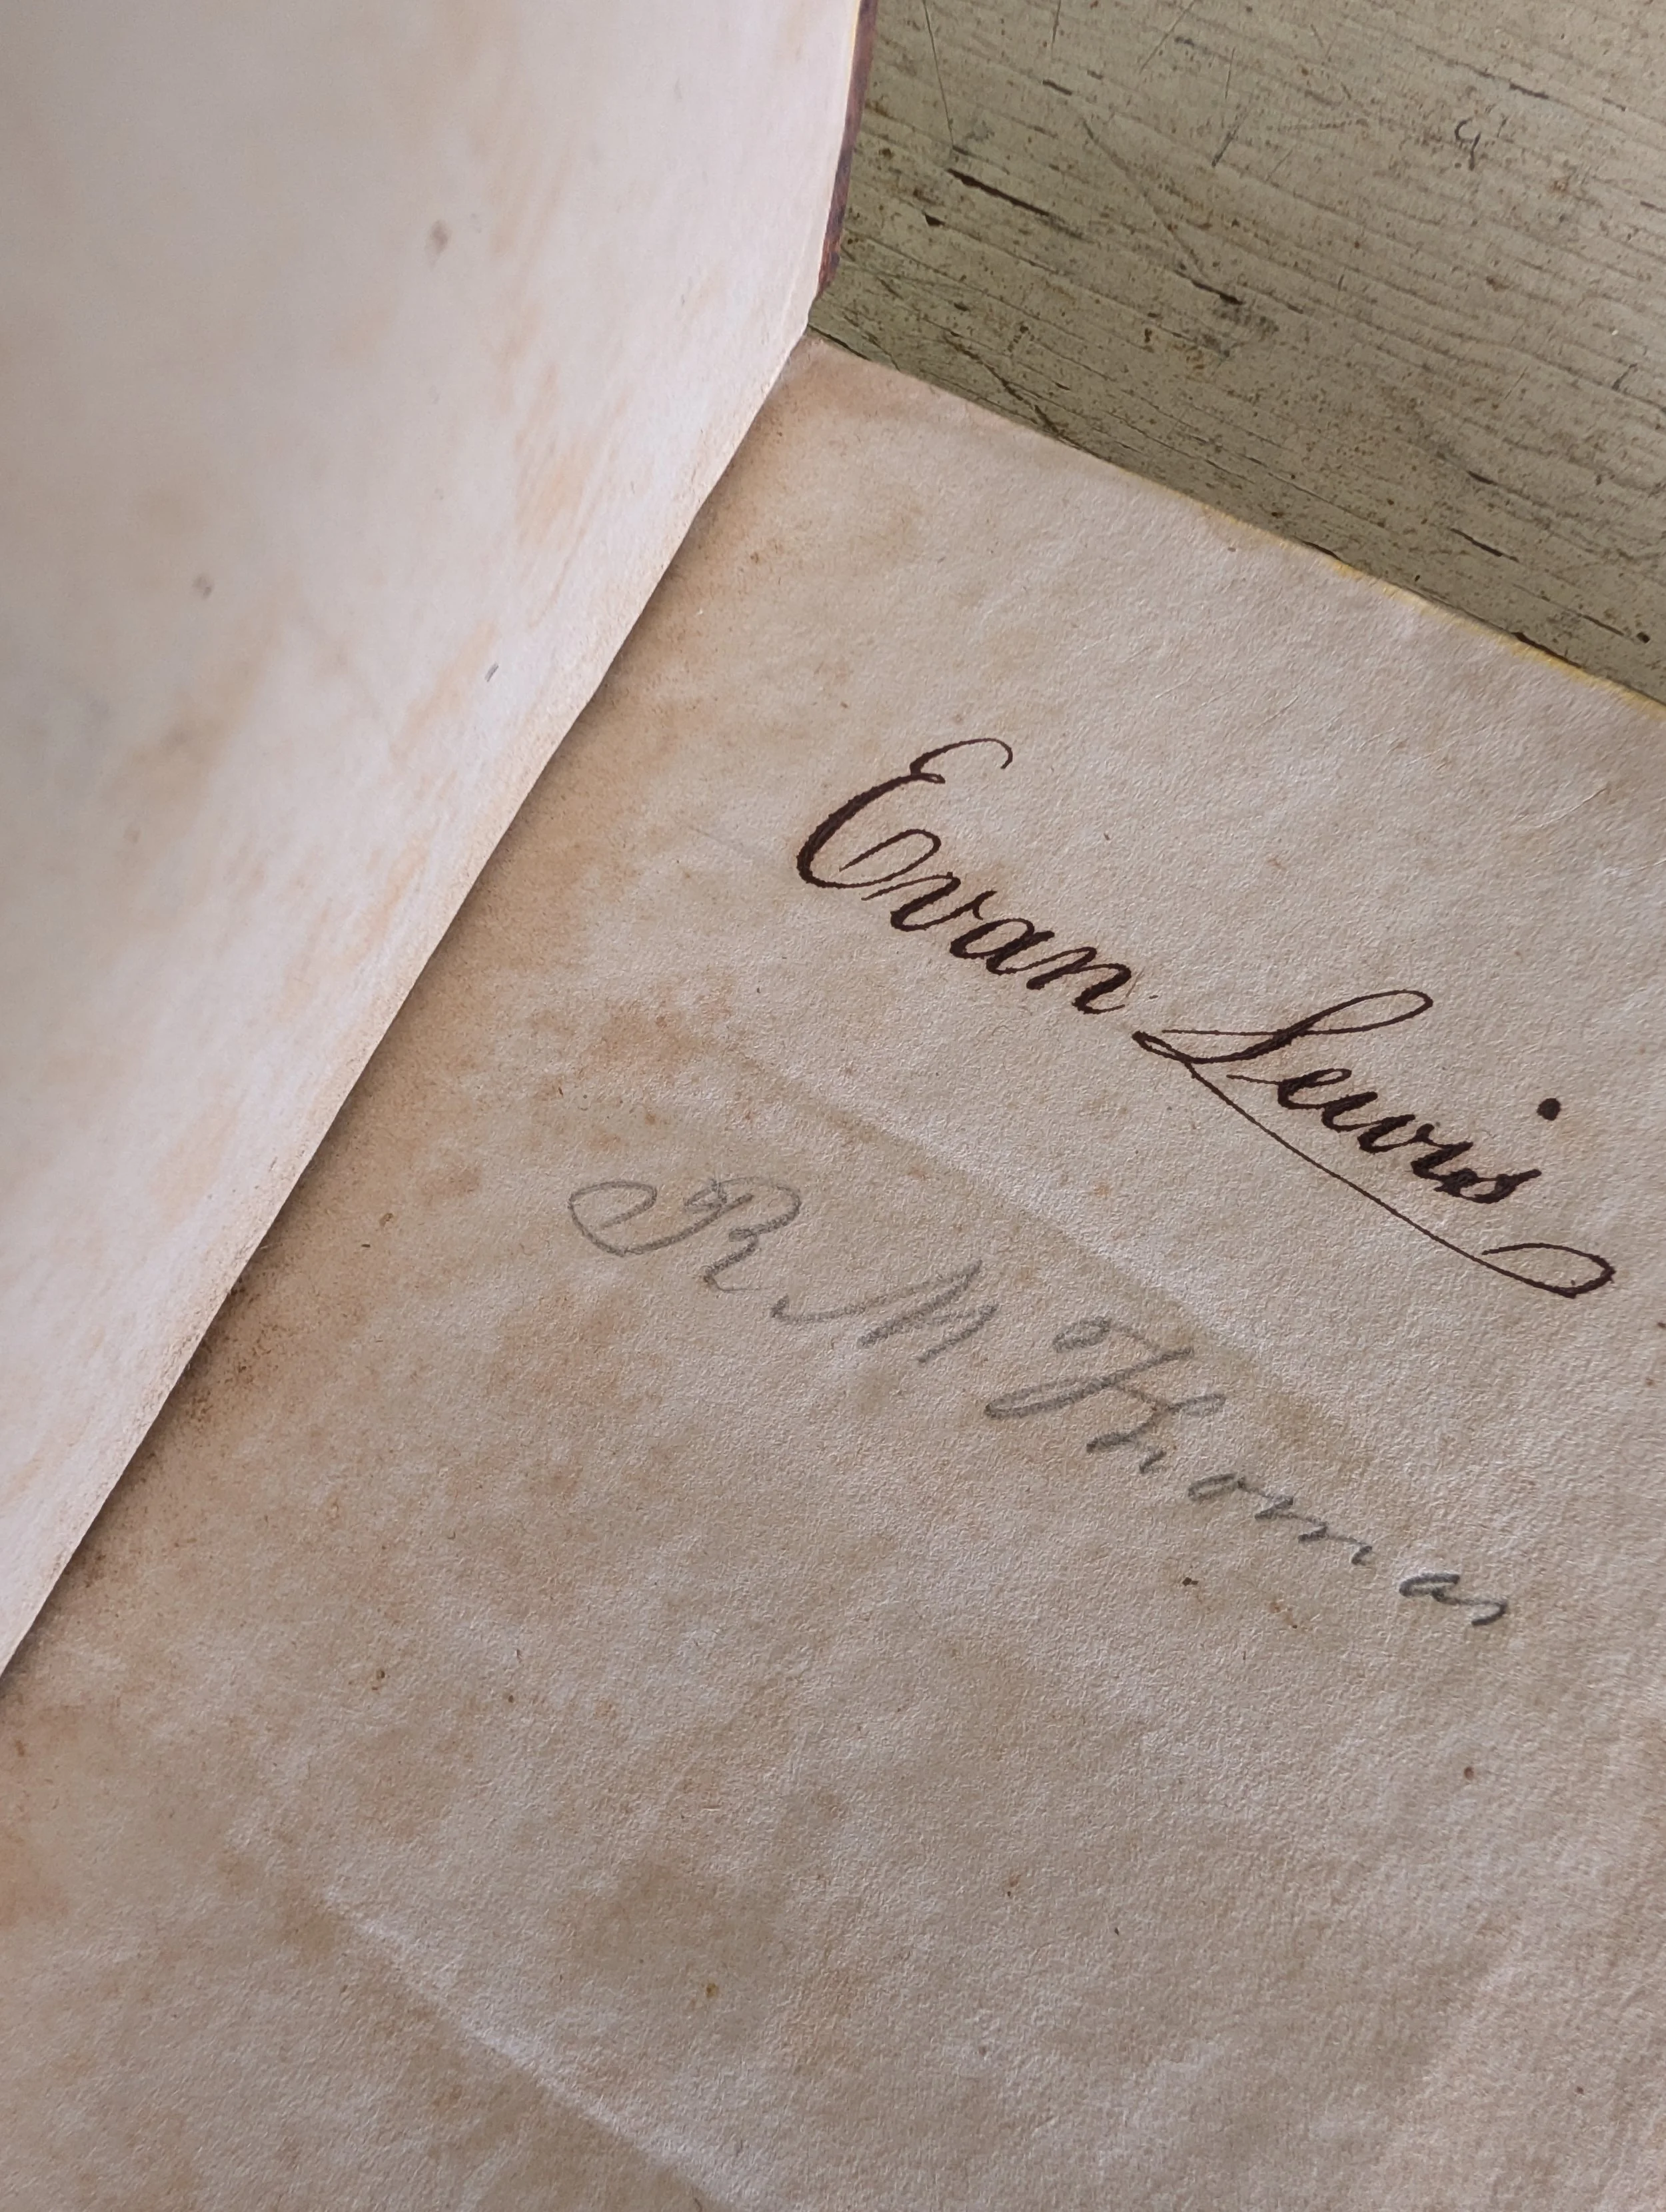 Evan Lewis
R M Thomas